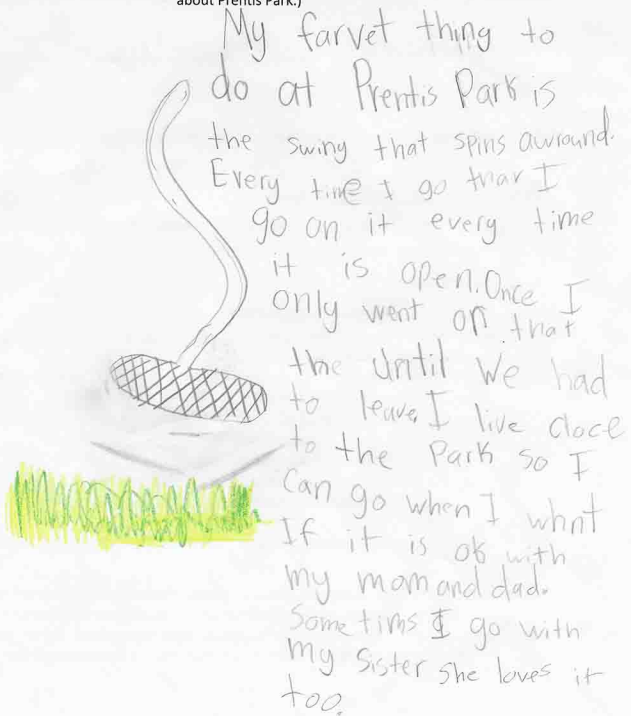 about Prentis Park.)
My farvet thing to
do at Prentis Park is
the swing that spins awround.
Every time I go thar I
go on it every time
it is open. Once I
only went on that
the until we had
to leave, I live cloce
to the Park so I
can go when I whnt
If it is ok with
my mom and dad.
Sometims I go with
my sister she loves it
too.